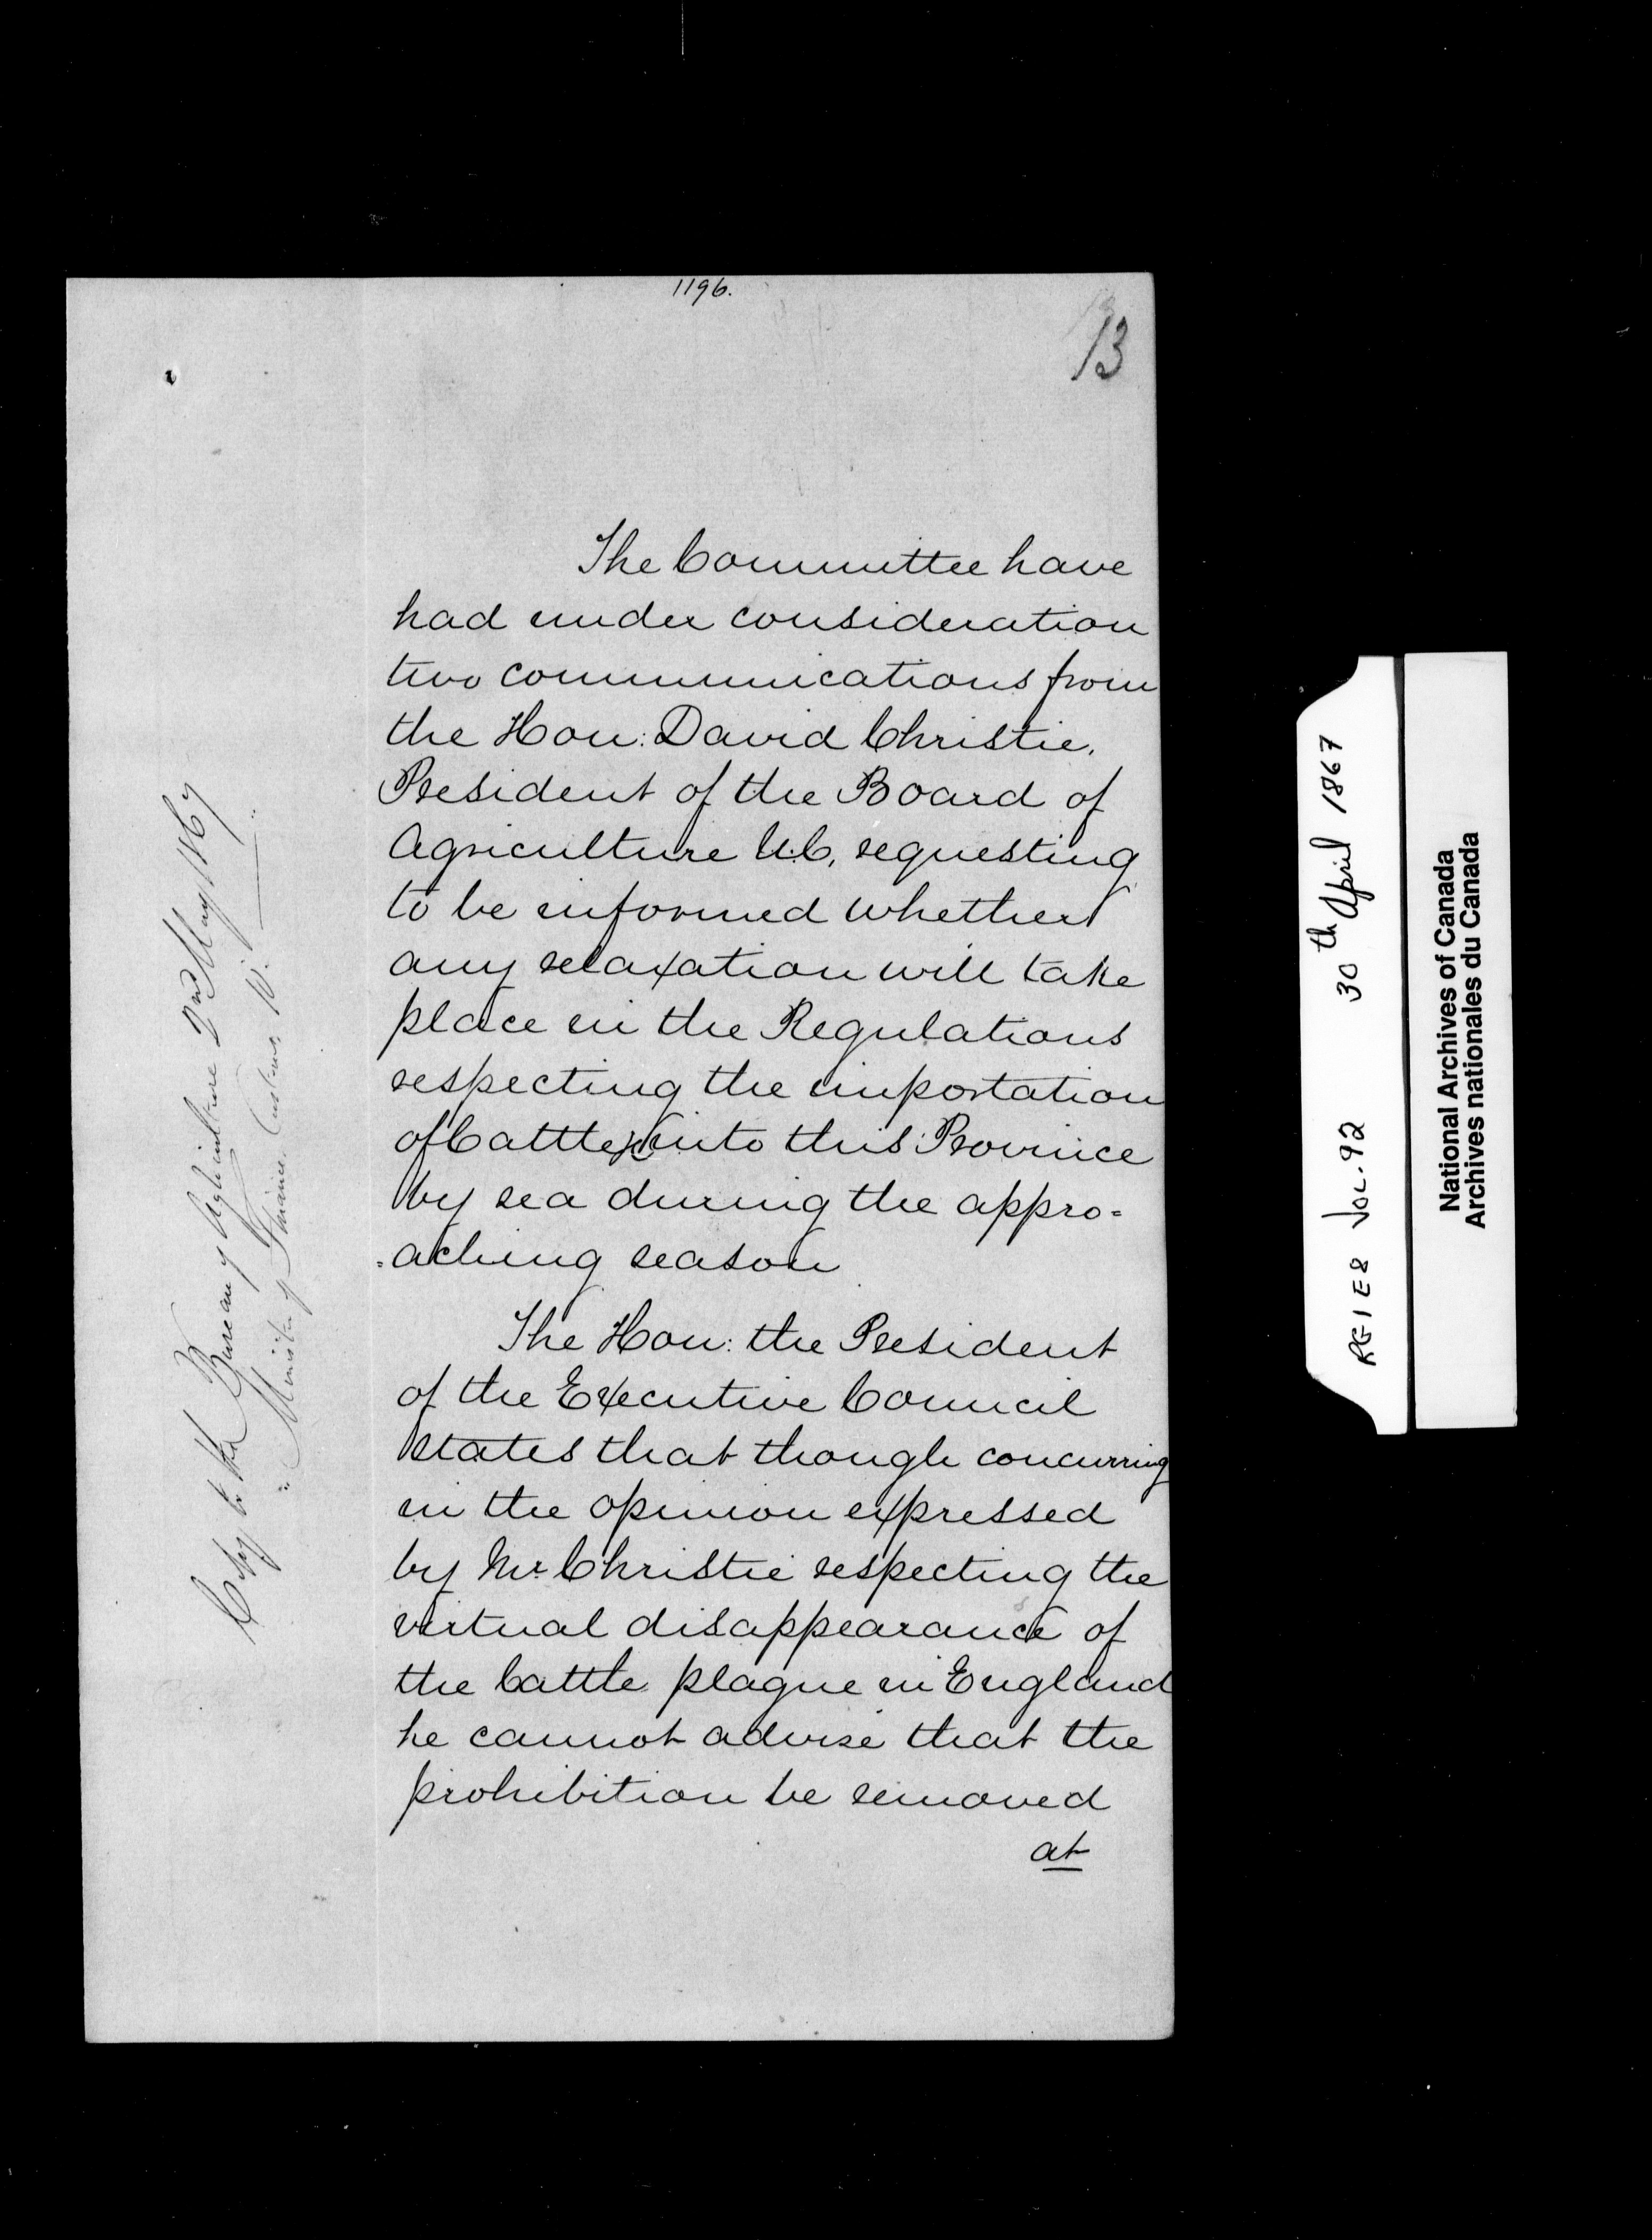 1196.
13
The Committee have
had under consideration
two communications from
the Hon: David Christie,
President of the Board of
Agriculture U.C, requesting
to be informed whether
any relaxation will take
place in the Regulations
respecting the importation
of Cattle &c into this Province
by sea during the appro=
=aching season
The Hon: the President
of the Executive Council
states that though concurring
in the opinion expressed
by Mr Christie respecting the
virtual disappearance of
the Cattle plague in England
he cannot advise that the
prohibition be removed
at
Copy to the Bureau of Agriculture 2nd May 1867
" Minister of Finance, Customs
RG1E8 VOL. 92 30th April 1867
National Archives of Canada
Archives nationales du Canada